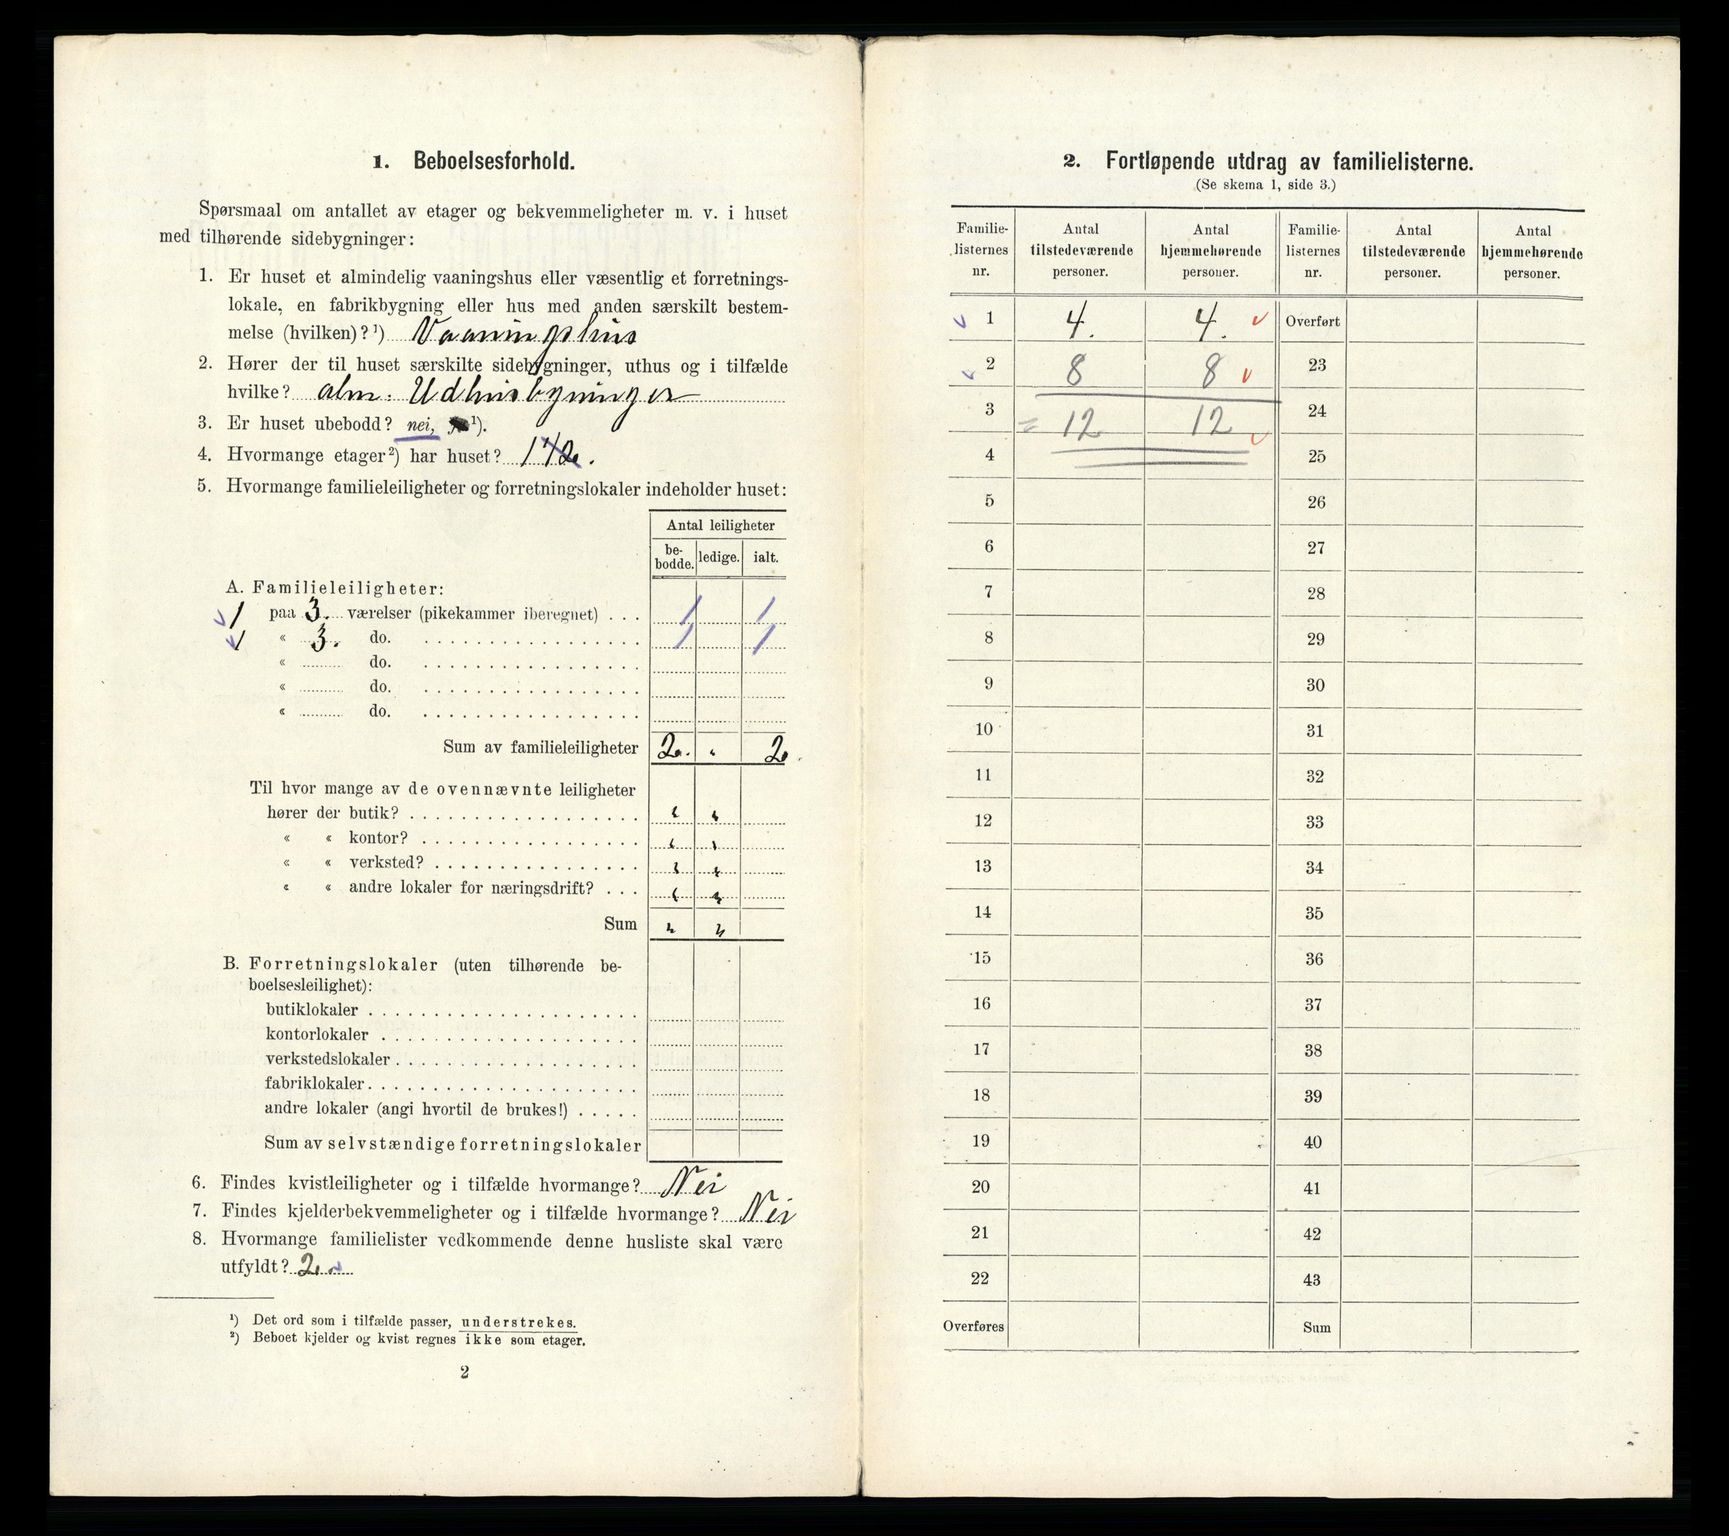 1. Beboelsesforhold.
Spørsmaal om antallet av etager og bekvemmeligheter m. v. i huset
med tilhørende sidebygninger:
1. Er huset et almindelig vaaningshus eller væsentlig et forretnings-
lokale, en fabrikbygning eller hus med anden særskilt bestem-
melse (hvilken)?¹) Vaaningshus
2. Hører der til huset særskilte sidebygninger, uthus og i tilfælde
hvilke? alm. Udhusbygninger
3. Er huset ubebodd? nei, ¹).
4. Hvormange etager²) har huset? 1 1/2.
5. Hvormange familieleiligheter og forretningslokaler indeholder huset:
Antal leiligheter
be-
bodde. ledige. ialt.
A. Familieleiligheter:
1 paa 3. værelser (pikekammer iberegnet) . . . 1 1
1 « 3. do. 1 1
« do.
« do.
« do.
Sum av familieleiligheter 2. " 2.
Til hvor mange av de ovennævnte leiligheter
hører der butik? " "
« « kontor? " "
« « verksted? " "
« « andre lokaler for næringsdrift? . . . " "
Sum " "
B. Forretningslokaler (uten tilhørende be-
boelsesleilighet):
butiklokaler
kontorlokaler
verkstedslokaler
fabriklokaler
andre lokaler (angi hvortil de brukes!)
Sum av selvstændige forretningslokaler
6. Findes kvistleiligheter og i tilfælde hvormange? Nei
7. Findes kjelderbekvemmeligheter og i tilfælde hvormange? Nei
8. Hvormange familielister vedkommende denne husliste skal være
utfyldt? 2.
¹) Det ord som i tilfælde passer, understrekes.
²) Beboet kjelder og kvist regnes ikke som etager.
2
2. Fortløpende utdrag av familielisterne.
(Se skema 1, side 3.)
Familie- Antal Antal Familie- Antal Antal
listernes tilstedeværende hjemmehørende listernes tilstedeværende hjemmehørende
nr. personer. personer. nr. personer. personer.
1 4. 4. Overført
2 8 8 23
3 = 12 12 24
4 25
5 26
6 27
7 28
8 29
9 30
10 31
11 32
12 33
13 34
14 35
15 36
16 37
17 38
18 39
19 40
20 41
21 42
22 43
Overføres Sum